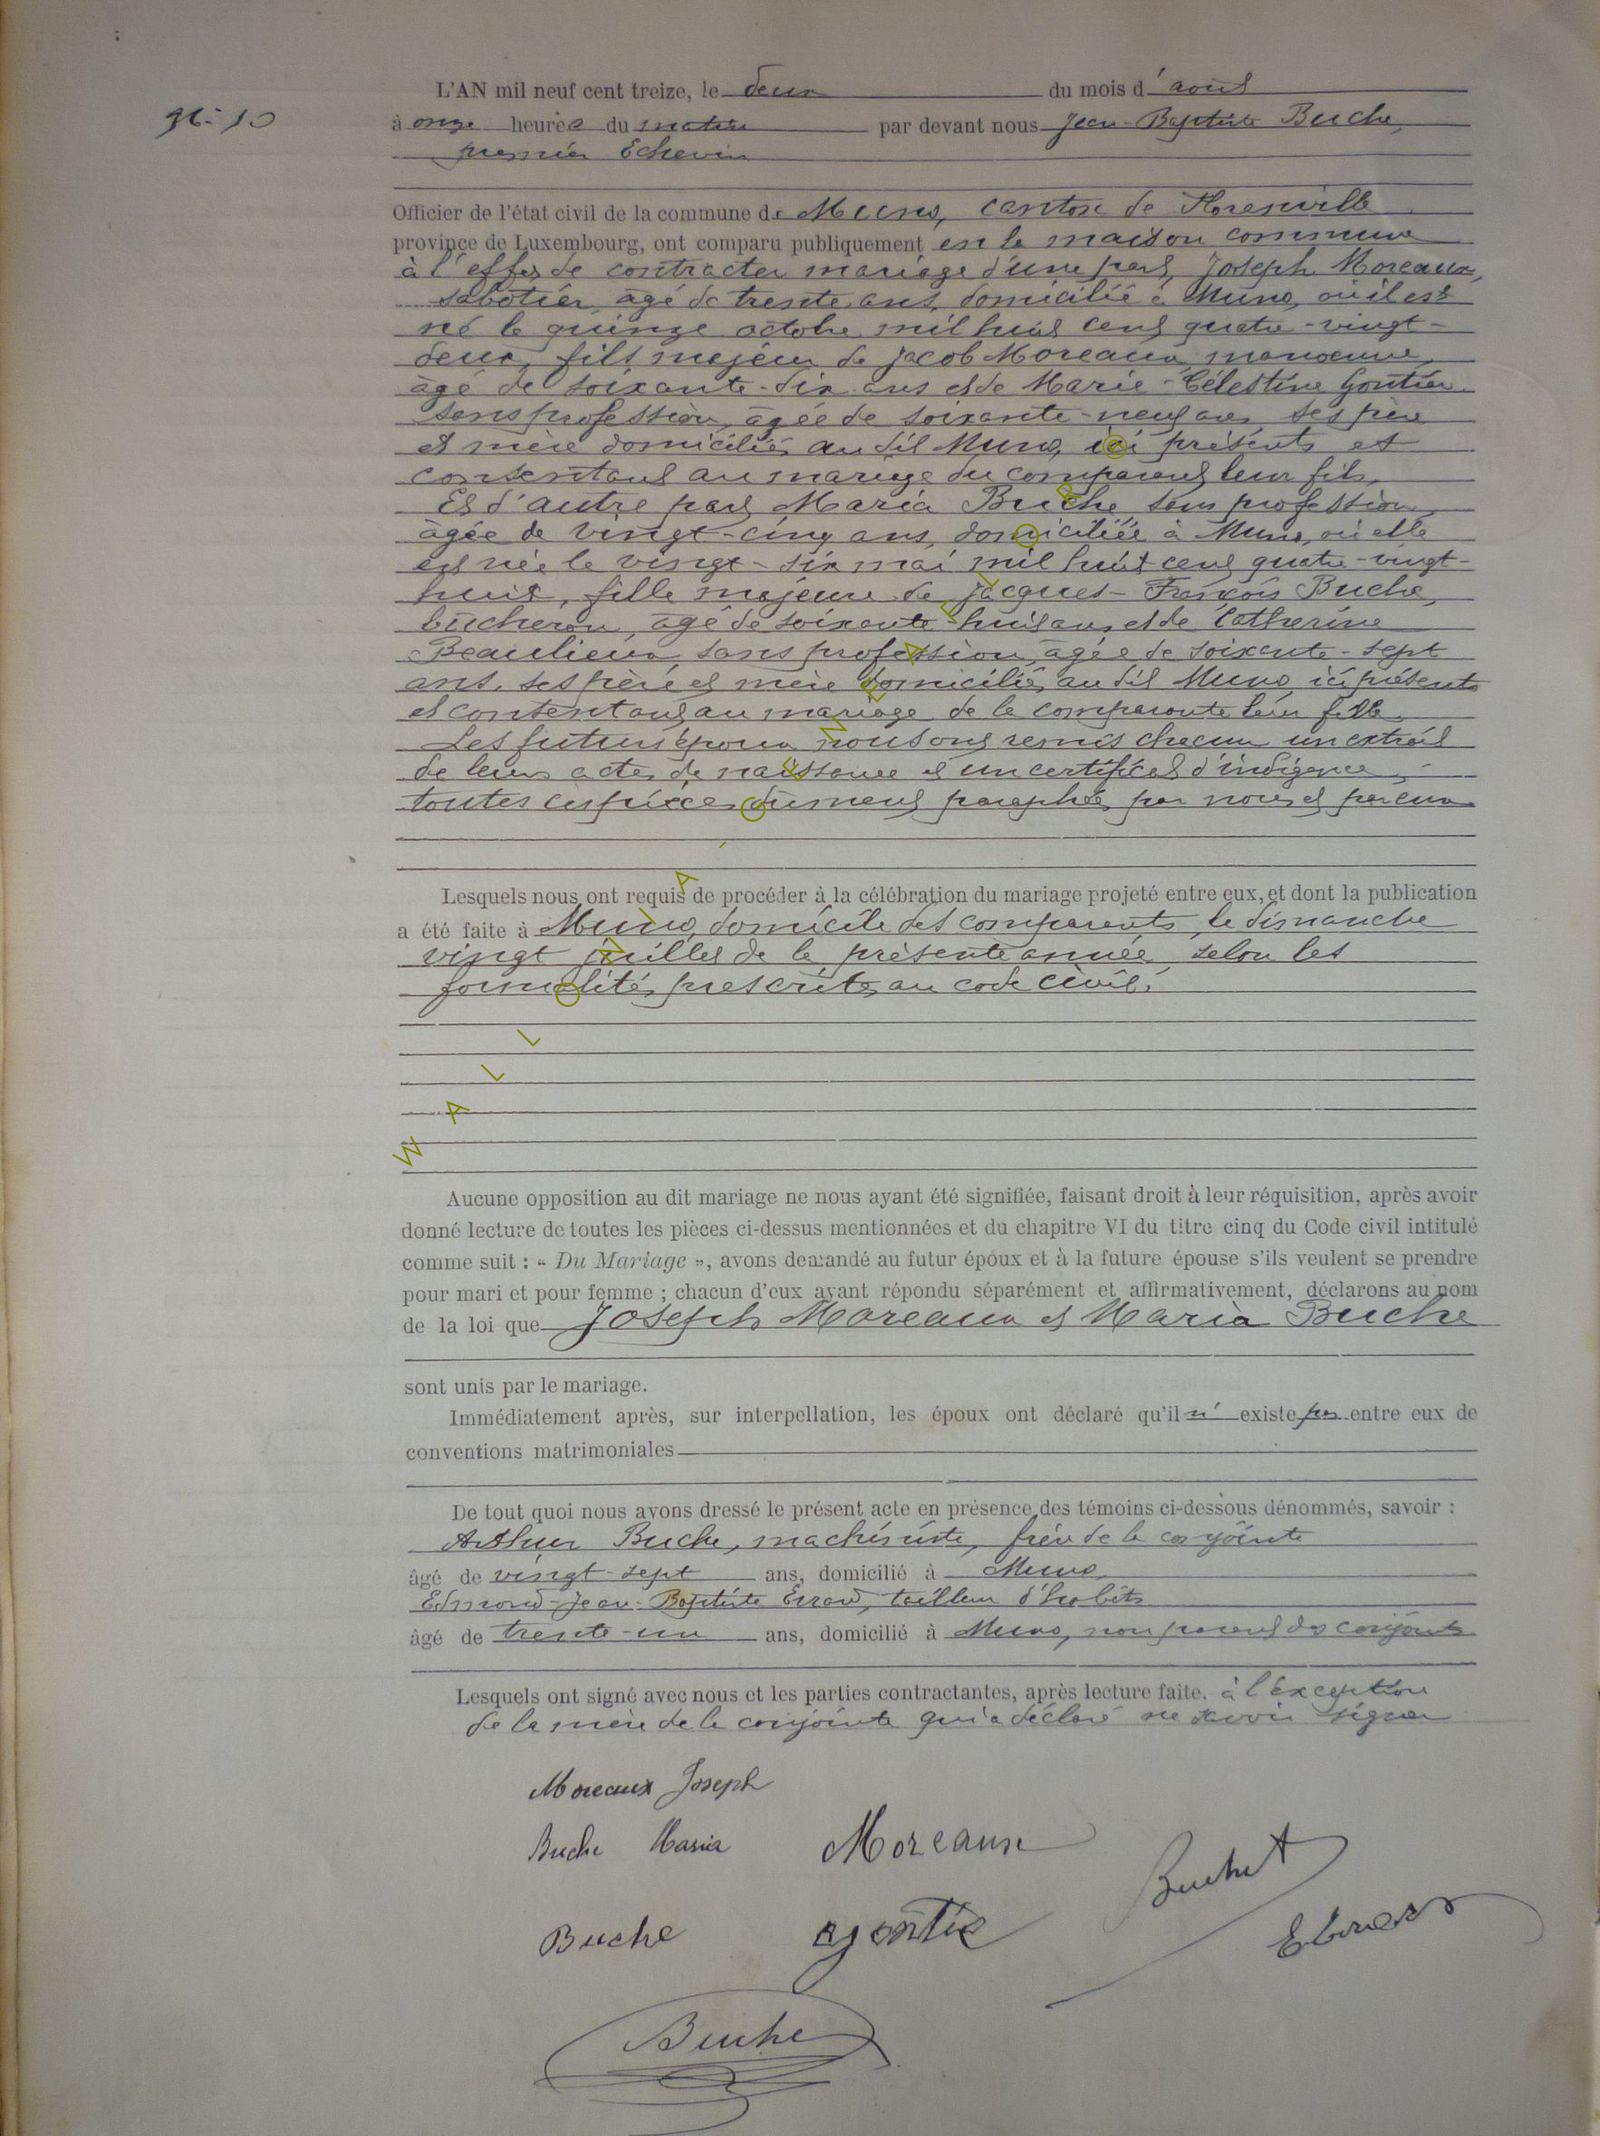 L'AN mil neuf cent treize, le deux du mois d'août
N: 10
à onze heures du matin par devant nous Jean-Baptiste Buche,
premier Echevin
Officier de l'état civil de la commune de Muno, canton de Florenville
province de Luxembourg, ont comparu publiquement en la maison commune
à l'effet de contracter mariage d'une part, Joseph Moreaux,
sabotier, âgé de trente ans, domicilié à Muno, où il est
né le quinze octobre mil huit cent quatre-vingt-
deux, fils majeur de Jacob Moreaux, manoeuvre,
âgé de soixante-dix ans et de Marie-Célestine Gontier
sans profession, âgée de soixante-neuf ans, ses père
et mère domiciliés au dit Muno, ici présents et
consentant au mariage du comparant leur fils,
Et d'autre part Maria Buche sans profession,
âgée de vingt-cinq ans, domiciliée à Muno, où elle
est née le vingt-six mai mil huit cent quatre-vingt-
huit, fille majeure de Jacques-François Buche,
bûcheron, âgé de soixante-huit ans, et de Catherine
Beaulieux, sans profession, âgée de soixante-sept
ans, ses père et mère domiciliés au dit Muno, ici présents
et consentant au mariage de la comparante leur fille.
Les futurs époux nous ont remis chacun un extrait
de leurs actes de naissance et un certificat d'indigence,
toutes ces pièces dûment paraphées par nous et par eux
Lesquels nous ont requis de procéder à la célébration du mariage projeté entre eux, et dont la publication
a été faite à Muno, domicile des comparants, le dimanche
vingt juillet de la présente année, selon les
formalités prescrites au code civil.
WALLONIA - GENEALOGIE
Aucune opposition au dit mariage ne nous ayant été signifiée, faisant droit à leur réquisition, après avoir
donné lecture de toutes les pièces ci-dessus mentionnées et du chapitre VI du titre cinq du Code civil intitulé
comme suit : « Du Mariage », avons demandé au futur époux et à la future épouse s'ils veulent se prendre
pour mari et pour femme ; chacun d'eux ayant répondu séparément et affirmativement, déclarons au nom
de la loi que Joseph Moreaux et Maria Buche
sont unis par le mariage.
Immédiatement après, sur interpellation, les époux ont déclaré qu'il n' existe pas entre eux de
conventions matrimoniales
De tout quoi nous avons dressé le présent acte en présence des témoins ci-dessous dénommés, savoir :
Arthur Buche, machiniste, frère de la conjointe
âgé de vingt-sept ans, domicilié à Muno,
Edmond-Jean-Baptiste Errard, tailleur d'habits
âgé de trente-un ans, domicilié à Muno, non parent des conjoints
Lesquels ont signé avec nous et les parties contractantes, après lecture faite. à l'exception
de la mère de la conjointe qui a déclaré ne savoir signer
Moreaux Joseph
Buche Maria Moreaux Buche A
Buche E. Errard
Buche